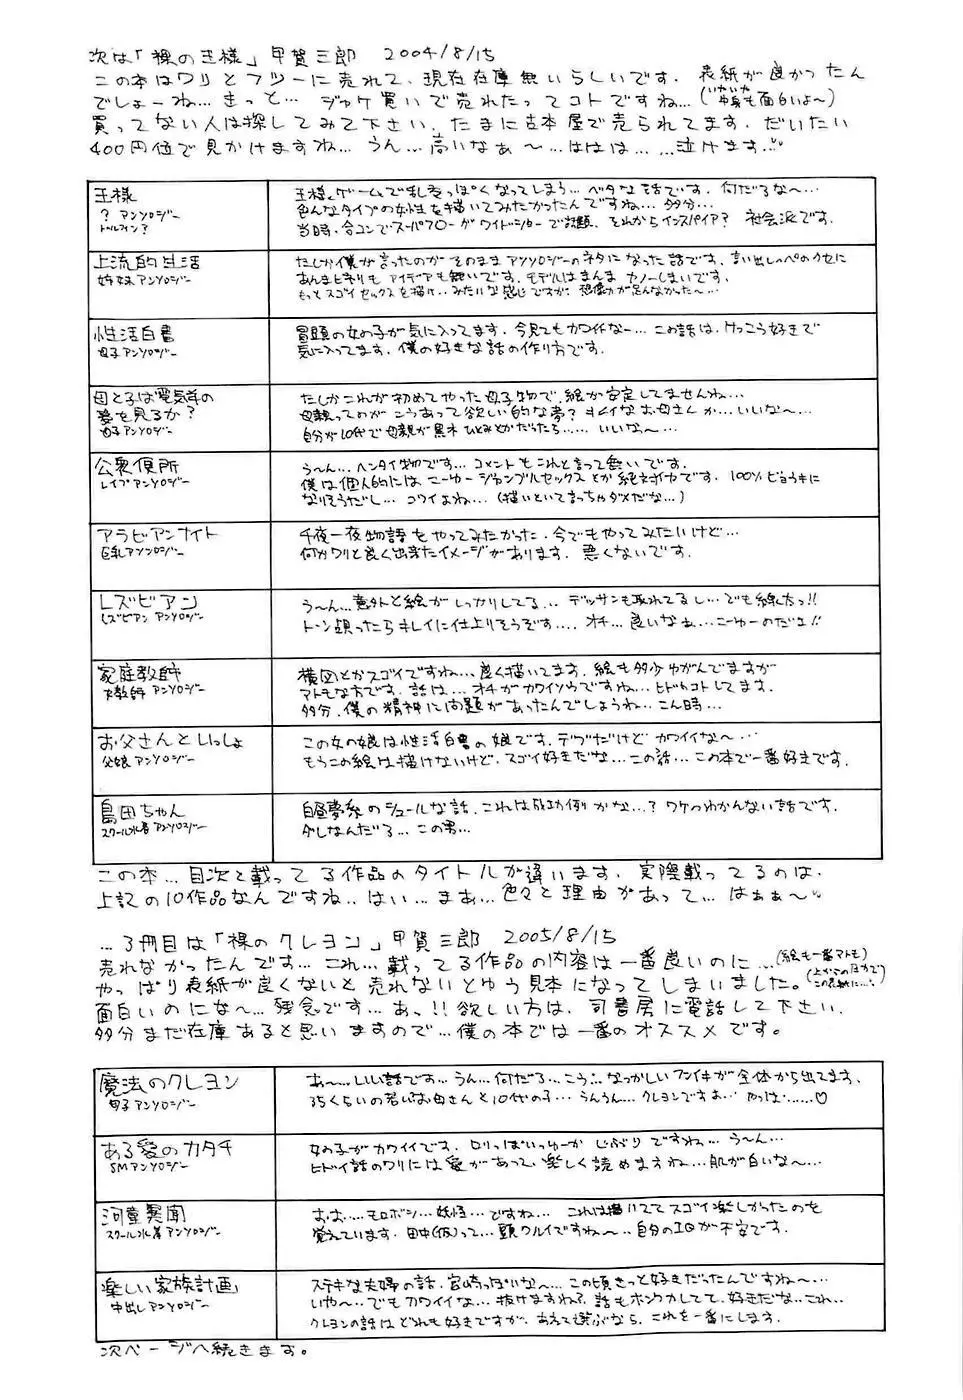 次は「裸の王様」甲賀三郎 2004/8/15
この本はワリとフツーに売れて、現在在庫無いらしいです。表紙が良かったん
でしょーね…きっと… ジャケ買いで売れたってコトですね…(いやいや中身も面白いよ〜)
買ってない人は探してみて下さい。たまに古本屋で売られてます。だいたい
400円位で見かけますね…うん…高いなぁ〜…ははは……泣けます
王様
? アンソロジー
王様ゲームで乱交っぽくなってしまう…ベタな話です。何だろな〜…
色んなタイプの女性を描いてみたかったんですね…多分…
当時、合コンでスーパーフリーがワイドショーで話題、それからインスパイア? 社会派です。
上流的生活
姉妹アンソロジー
たしか僕が言ったのがそのままアンソロジーのネタになった話です。言い出しっぺのクセに
あんまヒネリもアイデアも無いです。モデルはまんま カノーしまいです。
もっとスゴイセックスを描け…みたいな感じですが、想像力が足んなかった〜…
性活白書
母子アンソロジー
冒頭の女の子が気に入ってます。今見てもカワイイなー…この話は、けっこう好きで
気に入ってます。僕の好きな話の作り方です。
母と子は電気羊の
夢を見るか?
母子アンソロジー
たしかこれが初めてやった母子物で、絵が安定してませんね…
母親ってのがこうあって欲しい的な夢? キレイなお母さんか…いいな〜…
自分が10代で母親が黒木ひとみとかだったら……いいな〜…
公衆便所
レイプアンソロジー
う〜ん…ヘンタイ物です…コメントもこれと言って無いです。
僕は個人的にはこーゆージャンブルセックスとか絶対イヤです。100%ビョーキに
なりそうだし… コワイよね…(描いといて言っちゃダメだな…)
アラビアンナイト
巨乳アンソロジー
千夜一夜物語をやってみたかった。今でもやってみたいけど…
何かワリと良く出来たイメージがあります。悪くないです。
レズビアン
レズビアンアンソロジー
う〜ん…意外と絵がしっかりしてる…デッサンも取れてるし…でも線太っ!!
トーン貼ったらキレイに仕上りそうです…。オチ…良いなぁ…こーゆーのだよ!!
家庭教師
女教師アンソロジー
構図とかスゴイですね…良く描いてます。絵も多少ゆがんでますが
マトモな方です。話は…オチがカワイソウですね…ヒドイコトしてます。
多分、僕の精神に問題があったんでしょうね…こん時…
お父さんといっしょ
父娘アンソロジー
この女の娘は性活白書の娘です。デブだけどカワイイな〜…
もうこの絵は描けないけど、スゴイ好きだな…この話…この本で一番好きです。
島田ちゃん
スクール水着アンソロジー
白昼夢系のシュールな話。これは成功例かな…? ワケのわかんない話です。
ダレなんだろ…この男…
この本…目次と載ってる作品のタイトルが違います。実際載ってるのは、
上記の10作品なんですね…はい…まぁ…色々と理由があって…はぁぁ〜
…3冊目は「裸のクレヨン」甲賀三郎 2005/8/15
売れなかったんです…これ…載ってる作品の内容は一番良いのに…(絵も一番マトモ)
やっぱり表紙が良くないと売れないとゆう見本になってしまいました。
面白いのにな〜…残念です…あっ!! 欲しい方は、司書房に電話して下さい。
多分まだ在庫あると思いますので…僕の本では一番のオススメです。
魔法のクレヨン
母子アンソロジー
あ〜…いい話です…うん…何だろ…こう…なつかしいフンイキが全体から出てます。
35くらいの若いお母さんと10代の子…うんうん…クレヨンですよ…やっぱ……♡
ある愛のカタチ
SMアンソロジー
女の子がカワイイです。ロリっぽいっゆーか じぶりですね…う〜ん…
ヒドイ話のワリには愛があって、楽しく読めますね…肌が白いな〜…
河童異聞
スクール水着アンソロジー
おお……モロボシ…妖怪…ですね… これは描いててスゴイ楽しかったのを
覚えています。田中(仮)って…頭ワルイですね〜…自分のIQが不安です。
楽しい家族計画
中出しアンソロジー
ステキな夫婦の話。宮崎っぽいな〜…この頃きっと好きだったんですね〜…
いや〜…でもカワイイな…抜けますね?、話もホンワカしてて、好きだな…これ…
クレヨンの話はどれも好きですが、あえて選ぶなら、これを一番にします。
次ページへ続きます。